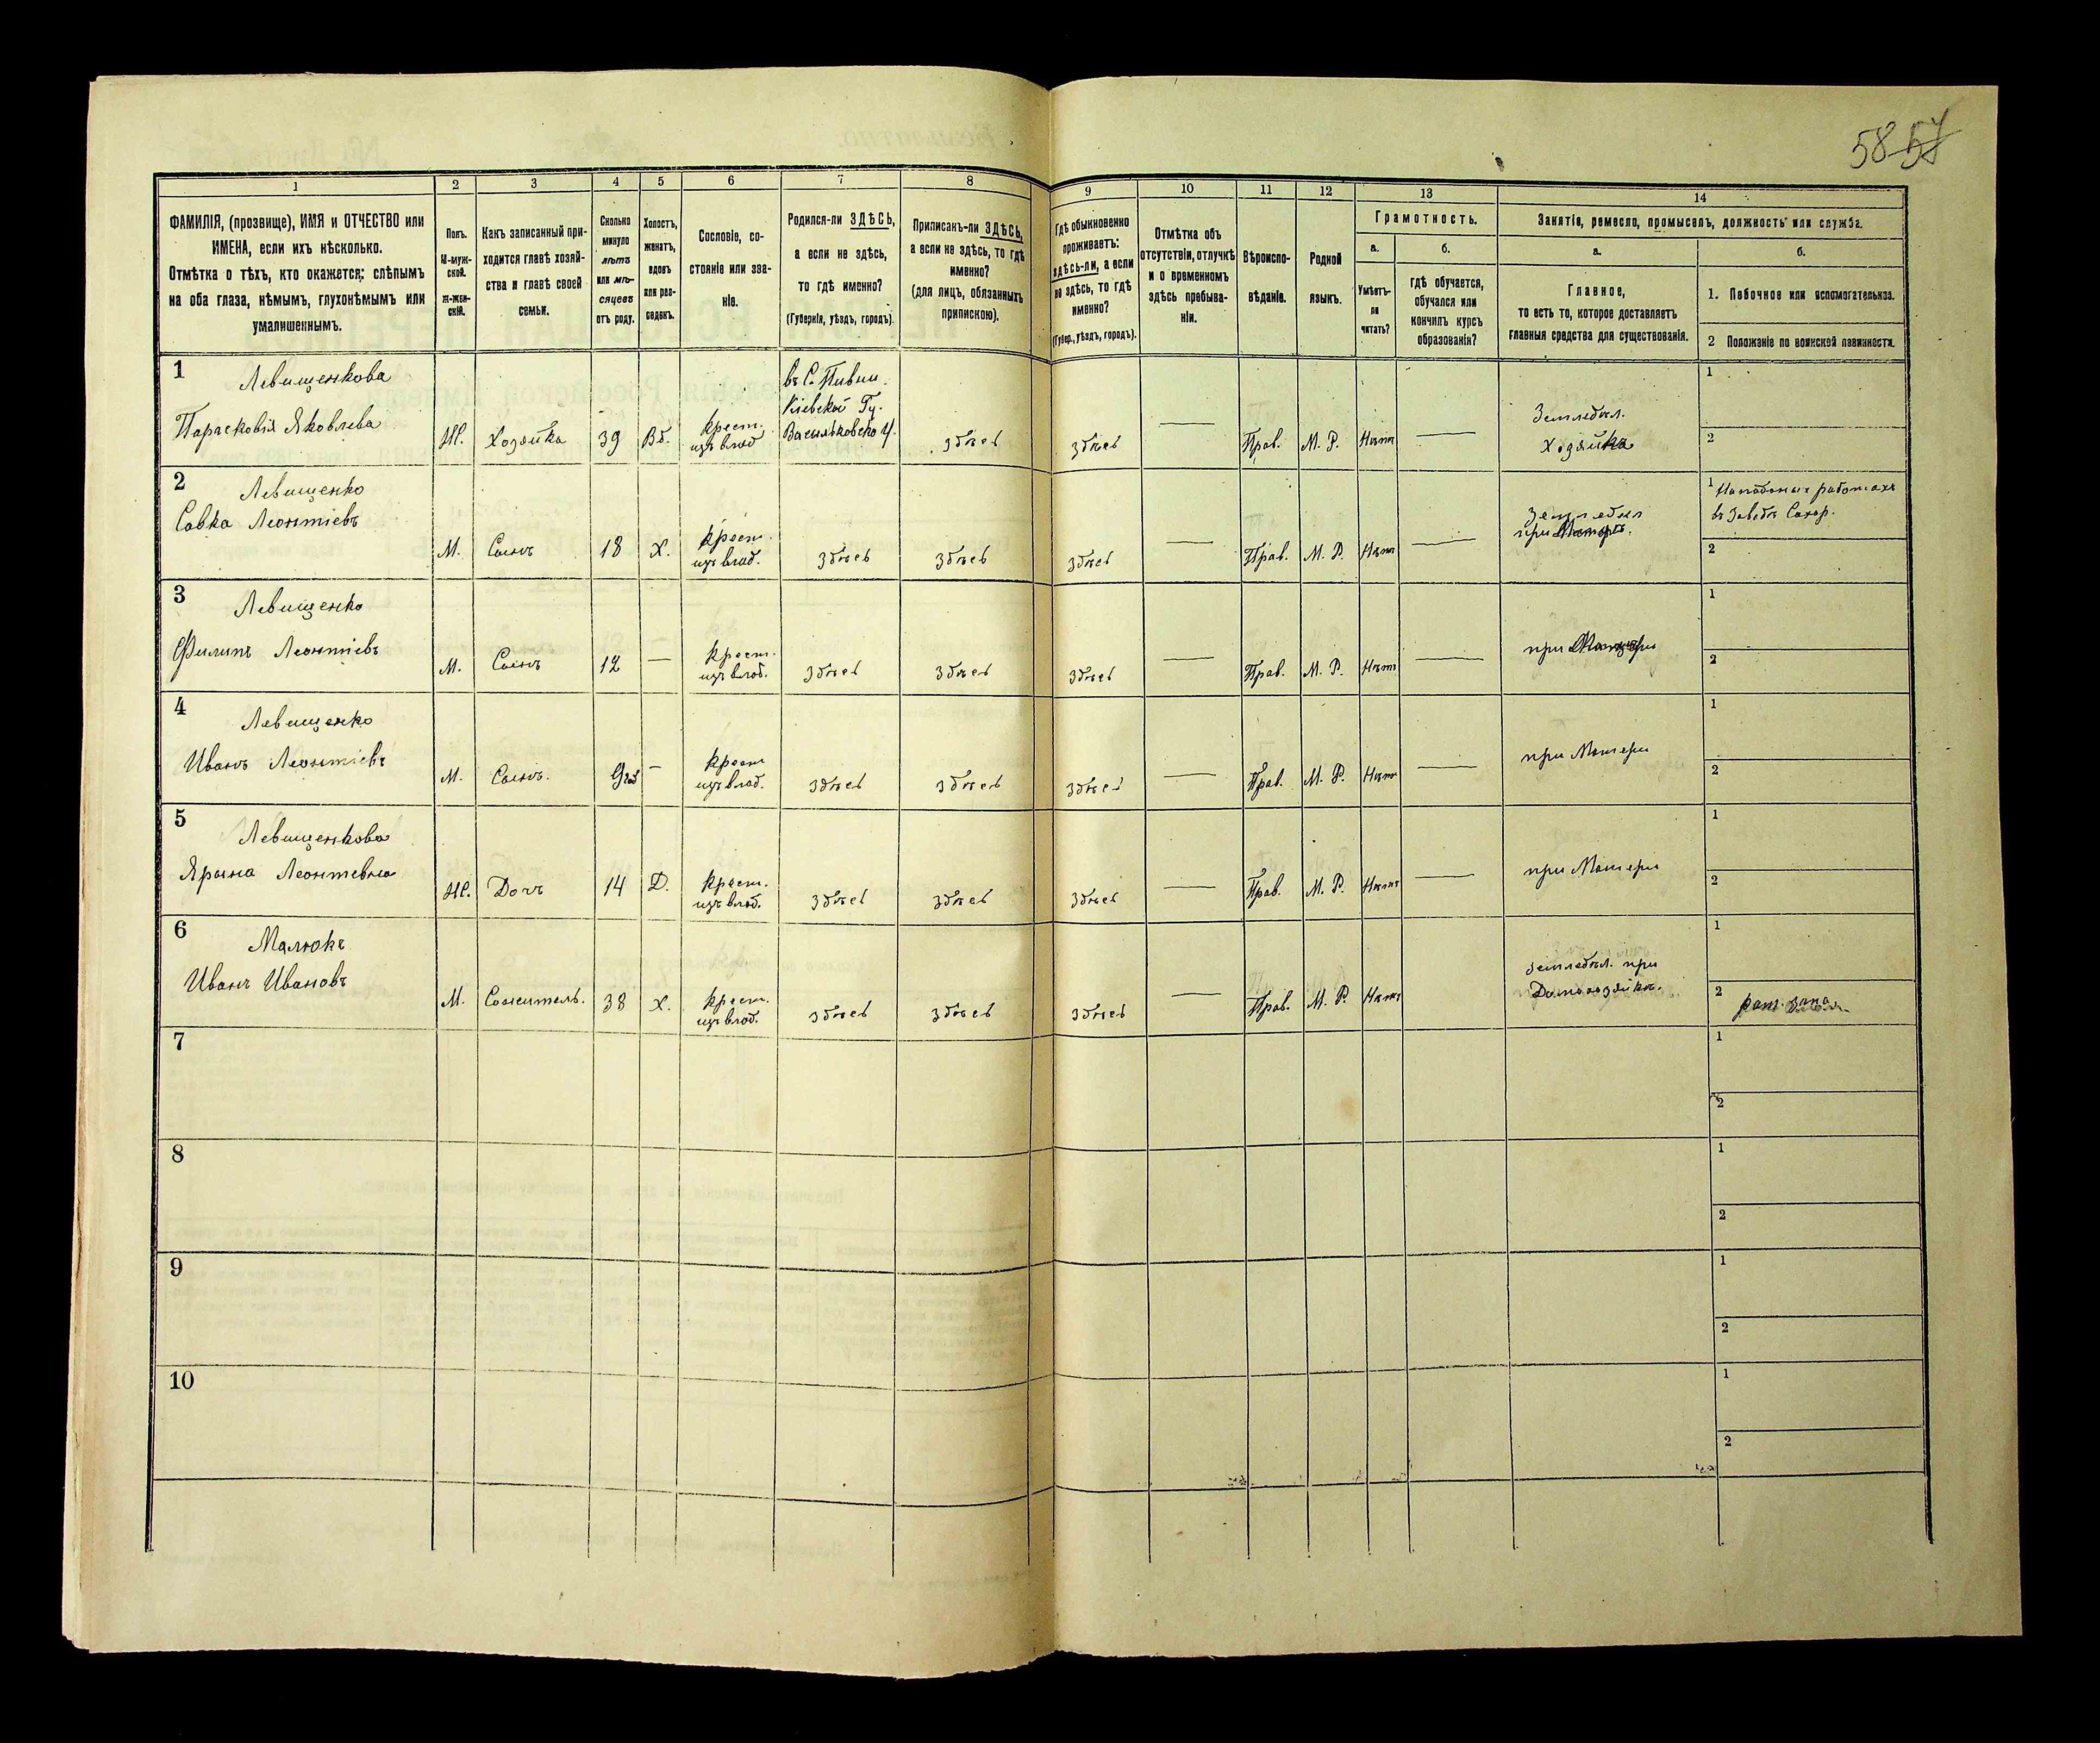 58 57
1 2 3 4 5 6 7 8 9 10 11 12 13 14
ФАМИЛІЯ, (прозвище), ИМЯ и ОТЧЕСТВО или
ИМЕНА, если ихъ нѣсколько.
Отмѣтка о тѣхъ, кто окажется; слѣпымъ
на оба глаза, нѣмымъ, глухонѣмымъ или
умалишеннымъ.
Полъ.
М-муж-
ской.
Ж-жен-
скій.
Какъ записанный при-
ходится главѣ хозяй-
ства и главѣ своей
семьи.
Сколько
минуло
лѣтъ
или мѣ-
сяцевъ
отъ роду.
Холостъ,
женатъ,
вдовъ
или раз-
веденъ.
Сословіе, со-
стояніе или зва-
ніе.
Родился-ли ЗДѢСЬ,
а если не здѣсь,
то гдѣ именно?
(Губернія, уѣздъ, городъ).
Приписанъ-ли ЗДѢСЬ,
а если не здѣсь, то гдѣ
именно?
(для лицъ, обязанныхъ
припискою).
Гдѣ обыкновенно
проживаетъ:
здѣсь-ли, а если
не здѣсь, то гдѣ
именно?
(Губер., уѣздъ, городъ).
Отмѣтка объ
отсутствіи, отлучкѣ
и о временномъ
здѣсь пребыва-
ніи.
Вѣроиспо-
вѣданіе.
Родной
языкъ.
Грамотность.
а.
Умѣетъ-
ли
читать?
б.
гдѣ обучается,
обучался или
кончилъ курсъ
образованія?
Занятіе, ремесло, промыселъ, должность или служба.
а.
Главное,
то есть то, которое доставляетъ
главныя средства для существованія.
б.
1. Побочное или вспомогательное.
2 Положеніе по воинской повинности.
1
Левищенкова
Парасковія Яковлева
Ж.
Хозяйка
39
Вд.
крест.
изъ влад
въ С. Пивни.
Кіевской Гу.
Васильковско У.
здѣсь
здѣсь
—
Прав.
М. Р.
Нѣтъ
—
Земледѣл.
Хозяйка
1
2
2
Левищенко
Савка Леонтіевъ
М.
Сынъ
18
Х.
крест.
изъ влад.
здѣсь
здѣсь
здѣсь
—
Прав.
М. Р.
Нѣтъ
—
Земледѣл
при Матери.
1
работахъ
въ Сахар.
2
3
Левищенко
Филипъ Леонтіевъ
М.
Сынъ
12
—
крест.
изъ влад.
здѣсь
здѣсь
здѣсь
—
Прав.
М. Р.
Нѣтъ
—
при Матери
1
2
4
Левищенко
Иванъ Леонтіевъ
М.
Сынъ.
9
—
крест
изъ влад.
здѣсь
здѣсь
здѣсь
—
Прав.
М. Р.
Нѣтъ
—
при Матери
1
2
5
Левищенкова
Ярына Леонтевна
Ж.
Дочъ
14
Д.
крест.
изъ влад.
здѣсь
здѣсь
здѣсь
—
Прав.
М. Р.
Нѣтъ
—
при Матери
1
2
6
Малюкъ
Иванъ Ивановъ
М.
Сожитель.
38
Х.
крест.
изъ влад.
здѣсь
здѣсь
здѣсь
—
Прав.
М. Р.
Нѣтъ
земледѣл. при
Домохозяйкѣ.
1
2
7
1
2
8
1
2
9
1
2
10
1
2